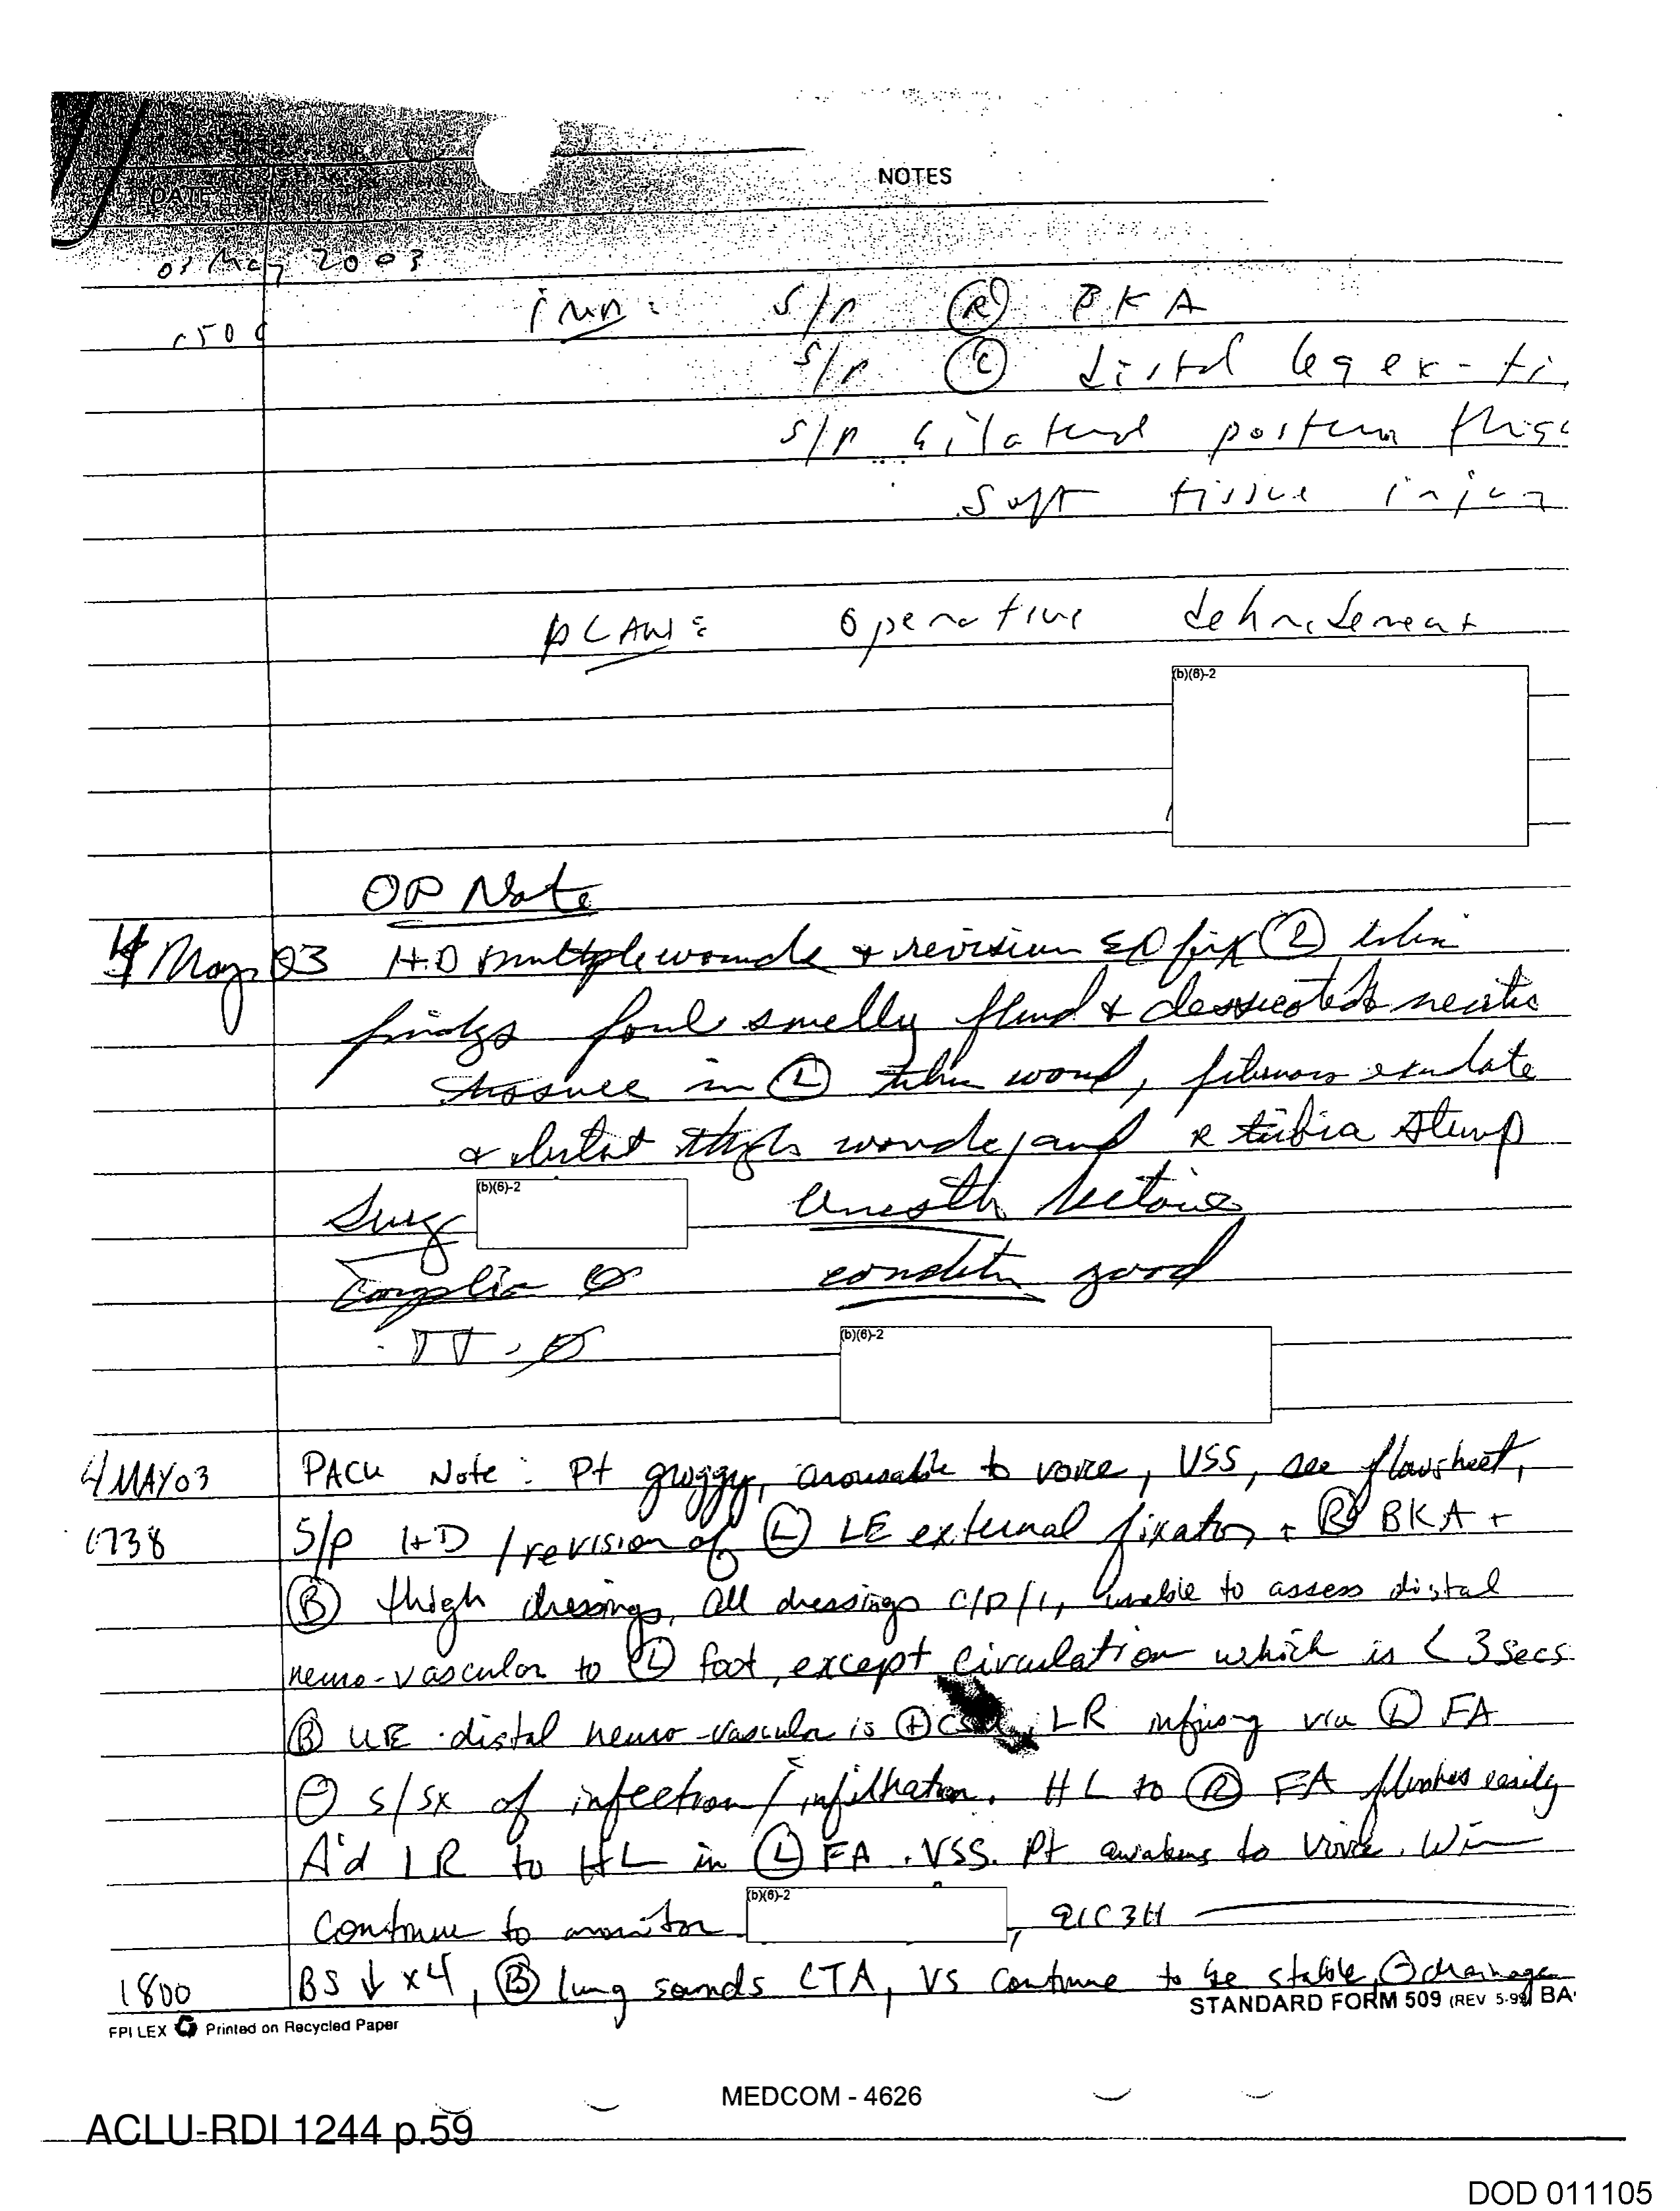 NOTES
DATE
03 May 2003
imp: S/P (R) BKA
S/P (L) distal leg ex-fi
S/P bilateral posterior
soft tissue injury
PLAN: operative debridement
(b)(6)-2
OP Note
4 May 03 I+D multiple wounds + revision fix (L) tibia
findgs foul smelly fluid + dessicated necrotic
tissue in (L) tibia wound, fibrinous exudate
thigh wounds, and R tibia stump
Surg (b)(6)-2 Anesth
Complic Ø condition good
TT. Ø
(b)(6)-2
4 MAY 03 PACU Note: Pt groggy, arousable to voice, VSS, see flowsheet,
1738 S/P I+D / revision of (L) LE external fixator, + (R) BKA +
(B) thigh dressings, all dressings C/D/I, unable to assess distal
neuro-vascular to (L) foot, except circulation which is < 3 secs
(B) UE distal neuro-vascular is (+) LR infusing via (L) FA
(-) s/sx of infection / infiltration. HL to (R) FA flushes easily
Δ'd LR to HL in (L) FA. VSS. Pt awakens to voice. Will
continue to monitor (b)(6)-2, 91C3H
1800 BS ↓ x4, (B) lung sounds CTA, VS continue to be stable, (-) drainage
STANDARD FORM 509 (REV 5-99) BA
FPI LEX Printed on Recycled Paper
MEDCOM - 4626
ACLU-RDI 1244 p.59
DOD 011105